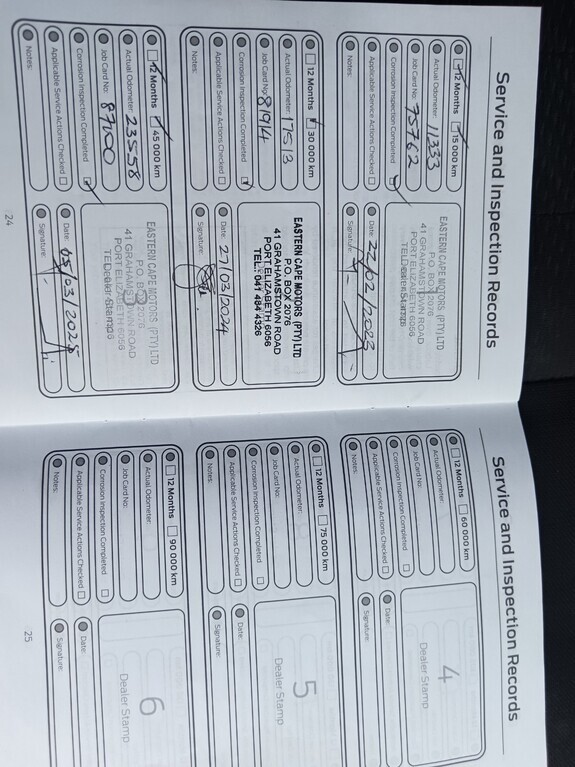 Service and Inspection Records
12 Months 15 000 km
Actual Odometer: 11333
Job Card No: 75762
Corrosion Inspection Completed
Applicable Service Actions Checked
Notes:
EASTERN CAPE MOTORS (PTY) LTD
P.O. BOX 2076
41 GRAHAMSTOWN ROAD
PORT ELIZABETH 6056
Dealer Stamp
Date: 22/02/2023
Signature:
12 Months 30 000 km
Actual Odometer: 17513
Job Card No: 81914
Corrosion Inspection Completed
Applicable Service Actions Checked
Notes:
EASTERN CAPE MOTORS (PTY) LTD
P.O. BOX 2076
41 GRAHAMSTOWN ROAD
PORT ELIZABETH 6056
TEL: 041 484 4326
Date: 27/03/2024
Signature:
12 Months 45 000 km
Actual Odometer: 23558
Job Card No: 87100
Corrosion Inspection Completed
Applicable Service Actions Checked
Notes:
EASTERN CAPE MOTORS (PTY) LTD
P.O. BOX 2076
41 GRAHAMSTOWN ROAD
PORT ELIZABETH 6056
Dealer Stamp
Date: 03/03/2025
Signature:
24
Service and Inspection Records
12 Months 60 000 km
Actual Odometer:
Job Card No:
Corrosion Inspection Completed
Applicable Service Actions Checked
Notes:
4
Dealer Stamp
Date:
Signature:
12 Months 75 000 km
Actual Odometer:
Job Card No:
Corrosion Inspection Completed
Applicable Service Actions Checked
Notes:
5
Dealer Stamp
Date:
Signature:
12 Months 90 000 km
Actual Odometer:
Job Card No:
Corrosion Inspection Completed
Applicable Service Actions Checked
Notes:
6
Dealer Stamp
Date:
Signature:
25